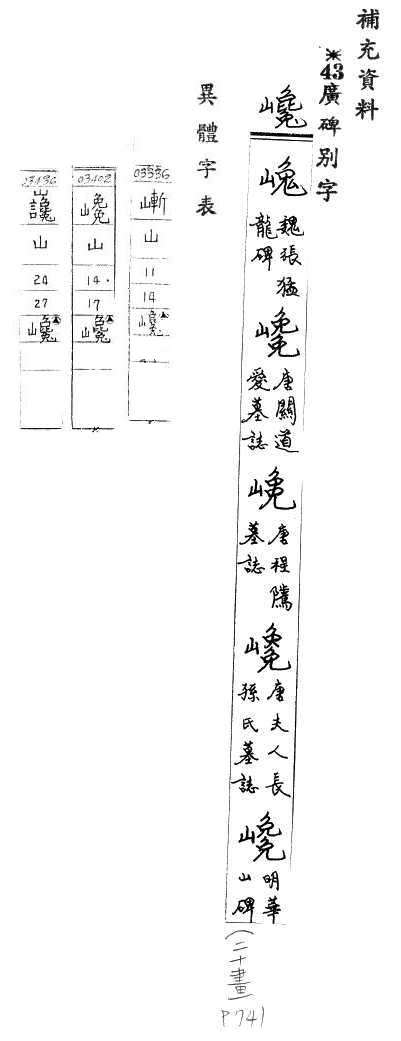 補充資料
※43廣碑別字
巉
魏張猛
龍碑
唐關道
愛墓誌
唐程騰
墓誌
唐夫人長
孫氏墓誌
明華
山碑
(二十畫)
P741
異體字表
03336
嶄
山
11
14
巉
03402
山
14
17
巉
03436
山
24
27
巉